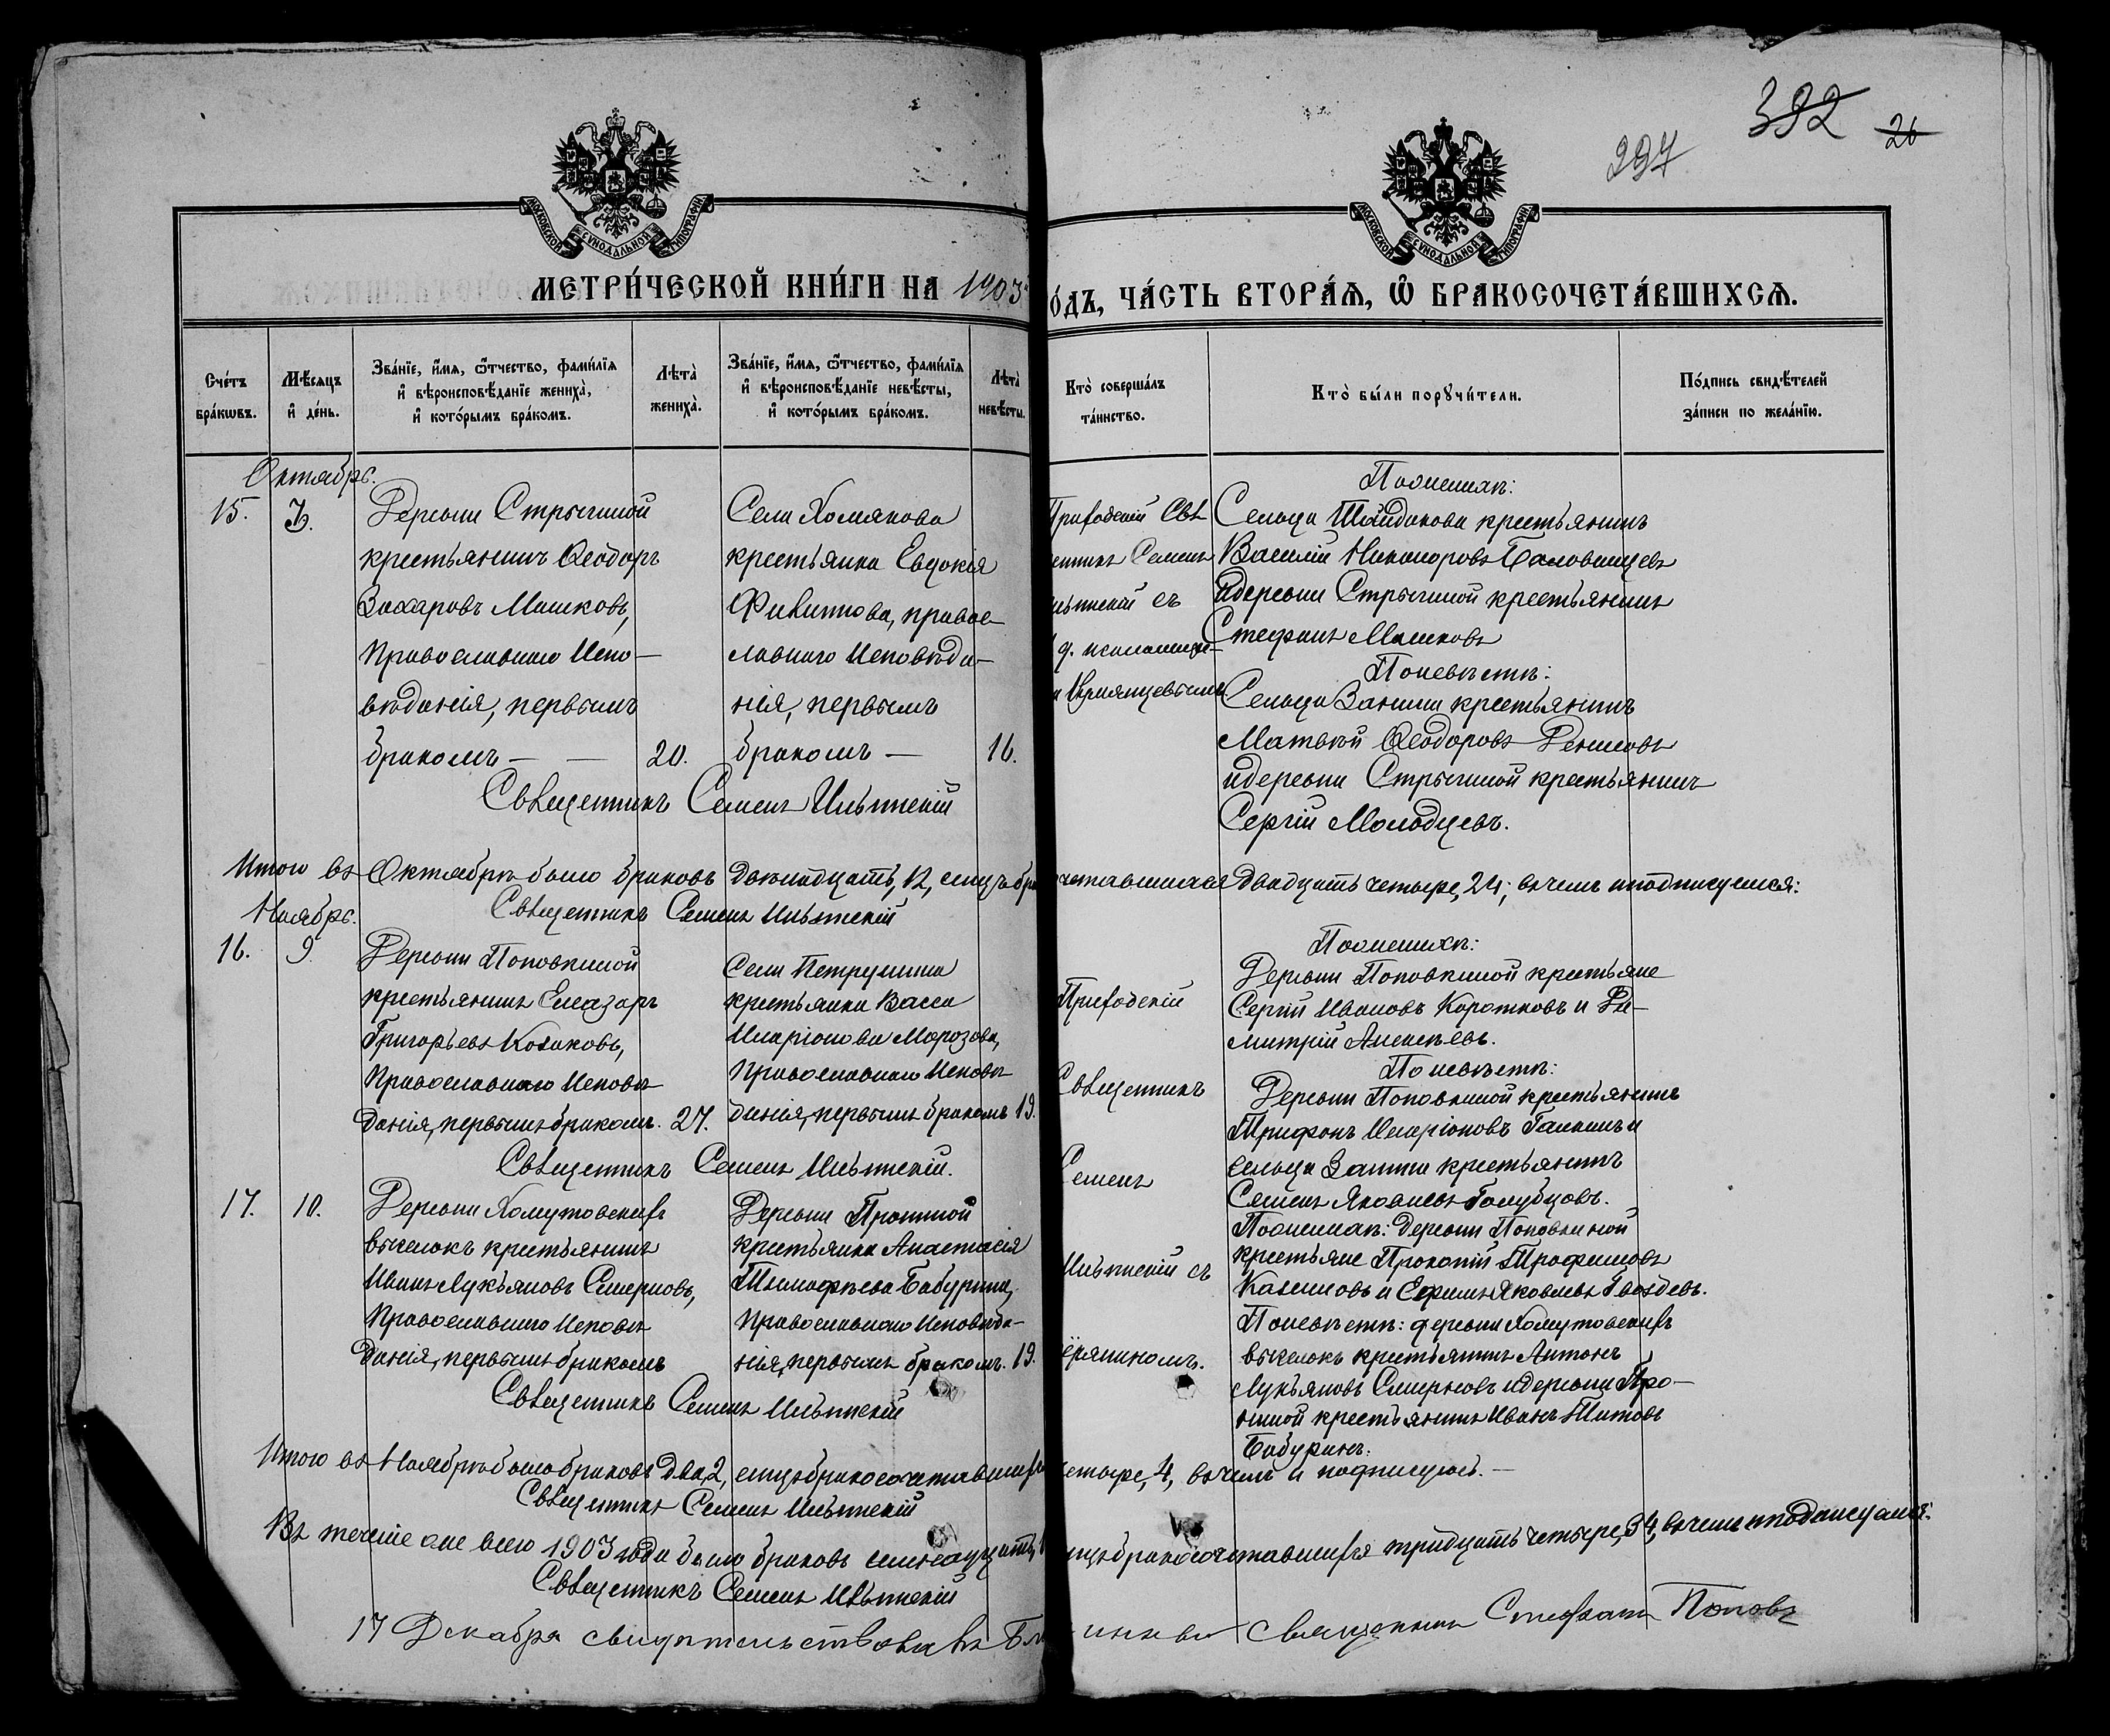 392
297
26
МОСКОВСКОЙ СѴНОДАЛЬНОЙ ТИПОГРАФІИ
МОСКОВСКОЙ СѴНОДАЛЬНОЙ ТИПОГРАФІИ
МЕТРИ́ЧЕСКОЙ КНИ́ГИ НА 1903
О́ДЪ, ЧА́СТЬ ВТОРА́Я, Ѽ БРАКОСОЧЕТА́ВШИХСЯ.
Сче́тъ
бра́кωвъ.
Мѣ́сяцъ
и҆ де́нь.
Зва́нїе, и҆́мя, ѻ҆́тчество, фами́лїя
и҆ вѣроисповѣ́данїе жениха̀,
и҆ кото́рымъ бра́комъ.
Лѣта̀
жениха̀.
Зва́нїе, и҆́мя, ѻ҆́тчество, фами́лїя
и҆ вѣроисповѣ́данїе невѣ́сты,
и҆ кото́рымъ бра́комъ.
Лѣта̀
невѣ́сты.
Кто̀ соверша́лъ
та́инство.
Кто̀ бы́ли порꙋчи́тели.
По́дпись свидѣ́телей
за́писи по жела́нїю.
Октябрь.
15.
Деревни Стрыгиной
крестьянинъ Ѳеодоръ
Захаровъ Машковъ,
Православнаго Испо-
вѣданія, первымъ
бракомъ —
20.
Села Хомякова
крестьянка Евдокія
Филиппова, правос-
лавнаго Исповѣда-
нія, первымъ
бракомъ —
16.
Приходскій Свя
енникъ Семенъ
съ
Пооженихѣ:
Сельца Шайдакова крестьянинъ
Василій Никаноровъ
и деревни Стрыгиной крестьянинъ
Стефанъ Машковъ
Поневѣстѣ:
Сельца Занина крестьянинъ
Матвѣй Ѳеодоровъ Денисовъ
и деревни Стрыгиной крестьянинъ
Сергій Молодцевъ.
Священникъ Семенъ
Итого въ Октябрѣ было браковъ двѣнадцать, 12, лицъ бра
четавшихся двадцать четыре, 24; въ чемъ и подписуемся:
Священникъ Семенъ
Ноябрь.
16.
9
Деревни Поповкиной
крестьянинъ Елеазаръ
Григорьевъ Козаковъ,
Православнаго Исповѣ
данія, первымъ бракомъ.
27.
Села Петрушина
крестьянка Васса
Иларіонова Морозова,
Православнаго Исповѣ
данія, первымъ бракомъ
19.
Приходскій
Священникъ
Семенъ
съ
Пооженихѣ:
Деревни Поповкиной крестьяне
Сергій Ивановъ Коротковъ и Ди-
митрій Алексѣевъ.
Поневѣстѣ:
Деревни Поповкиной крестьянинъ
Трифонъ Иларіоновъ Галкинъ и
сельца Занина крестьянинъ
Семенъ Яковлевъ Голубцовъ.
Священникъ Семенъ
17.
10.
Деревни Хомутовскихъ
выселокъ крестьянинъ
Иванъ Лукьяновъ Смирновъ,
Православнаго Исповѣ
данія, первымъ бракомъ
Деревни Прониной
крестьянка Анастасія
Тимофѣева Бабурина,
Православнаго Исповѣда-
нія, первымъ бракомъ.
19.
Пооженихѣ: деревни Поповкиной
крестьяне Прокопій Трофимовъ
и Ефимъ Яковлевъ Гвоздевъ.
Поневѣстѣ: деревни Хомутовскихъ
выселокъ крестьянинъ Антонъ
Лукьяновъ Смирновъ и деревни Про-
ниной крестьянинъ Иванъ Титовъ
Бабуринъ.
Священникъ Семенъ
Итого въ Ноябрѣ было браковъ два, 2, лицъ бракосочетавшихся
етыре, 4, въ чемъ и подписуюсь. —
Священникъ Семенъ
Въ теченіе сего 1903 года было браковъ семнадцать,
лицъ бракосочетавшихся тридцать четыре, 34, въ чемъ и подписуемся:
Священникъ Семенъ
17 Декабря свидѣтельствовалъ
Священникъ Стефанъ Поповъ